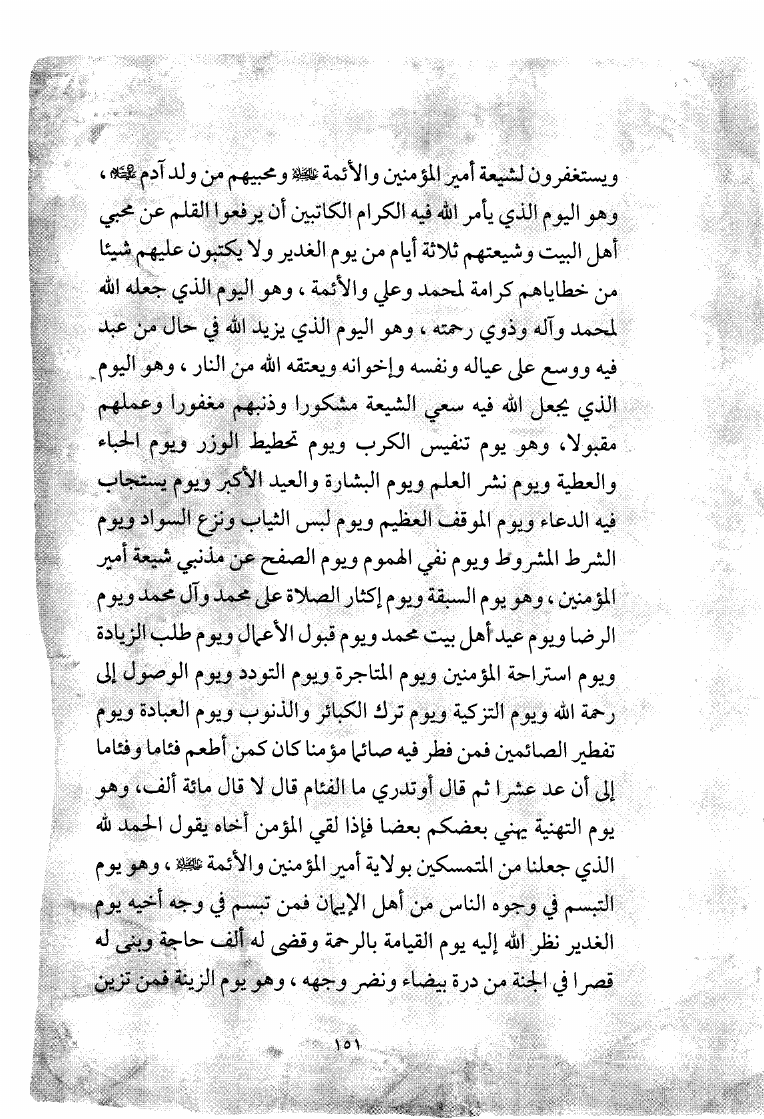 ويستغفرون لشيعة أمير المؤمنين والأئمة ومحبيهم من ولد آدم ،
وهو اليوم الذي يأمر الله فيه الكرام الكاتبين أن يرفعوا القلم عن محبي
أهل البيت وشيعتهم ثلاثة أيام من يوم الغدير ولا يكتبون عليهم شيئا
من خطاياهم كرامة لمحمد وعلي والأئمة ، وهو اليوم الذي جعله الله
لمحمد وآله وذوي رحمته ، وهو اليوم الذي يزيد الله في حال من عبد
فيه ووسع على عياله ونفسه وإخوانه ويعتقه الله من النار ، وهو اليوم
الذي يجعل الله فيه سعي الشيعة مشكورا وذنبهم مغفورا وعملهم
مقبولا، وهو يوم تنفيس الكرب ويوم تحطيط الوزر ويوم الحباء
والعطية ويوم نشر العلم ويوم البشارة والعيد الأكبر ويوم يستجاب
فيه الدعاء ويوم الموقف العظيم ويوم لبس الثياب ونزع السواد ويوم
الشرط المشروط ويوم نفي الهموم ويوم الصفح عن مذنبي شيعة أمير
المؤمنين ، وهو يوم السبقة ويوم إكثار الصلاة على محمد وآل محمد ويوم
الرضا ويوم عيد أهل بيت محمد ويوم قبول الأعمال ويوم طلب الزيادة
ويوم استراحة المؤمنين ويوم المتاجرة ويوم التودد ويوم الوصول إلى
رحمة الله ويوم التزكية ويوم ترك الكبائر والذنوب ويوم العبادة ويوم
تفطير الصائمين فمن فطر فيه صائما مؤمنا كان كمن أطعم فئاما وفئاما
إلى أن عد عشرا ثم قال أوتدري ما الفئام قال لا قال مائة ألف، وهو
يوم التهنية يهني بعضكم بعضا فإذا لقي المؤمن أخاه يقول الحمد لله
الذي جعلنا من المتمسكين بولاية أمير المؤمنين والأئمة ، وهو يوم
التبسم في وجوه الناس من أهل الإيمان فمن تبسم في وجه أخيه يوم
الغدير نظر الله إليه يوم القيامة بالرحمة وقضى له ألف حاجة وبنى له
قصرا في الجنة من درة بيضاء ونضر وجهه ، وهو يوم الزينة فمن تزين
١٥١